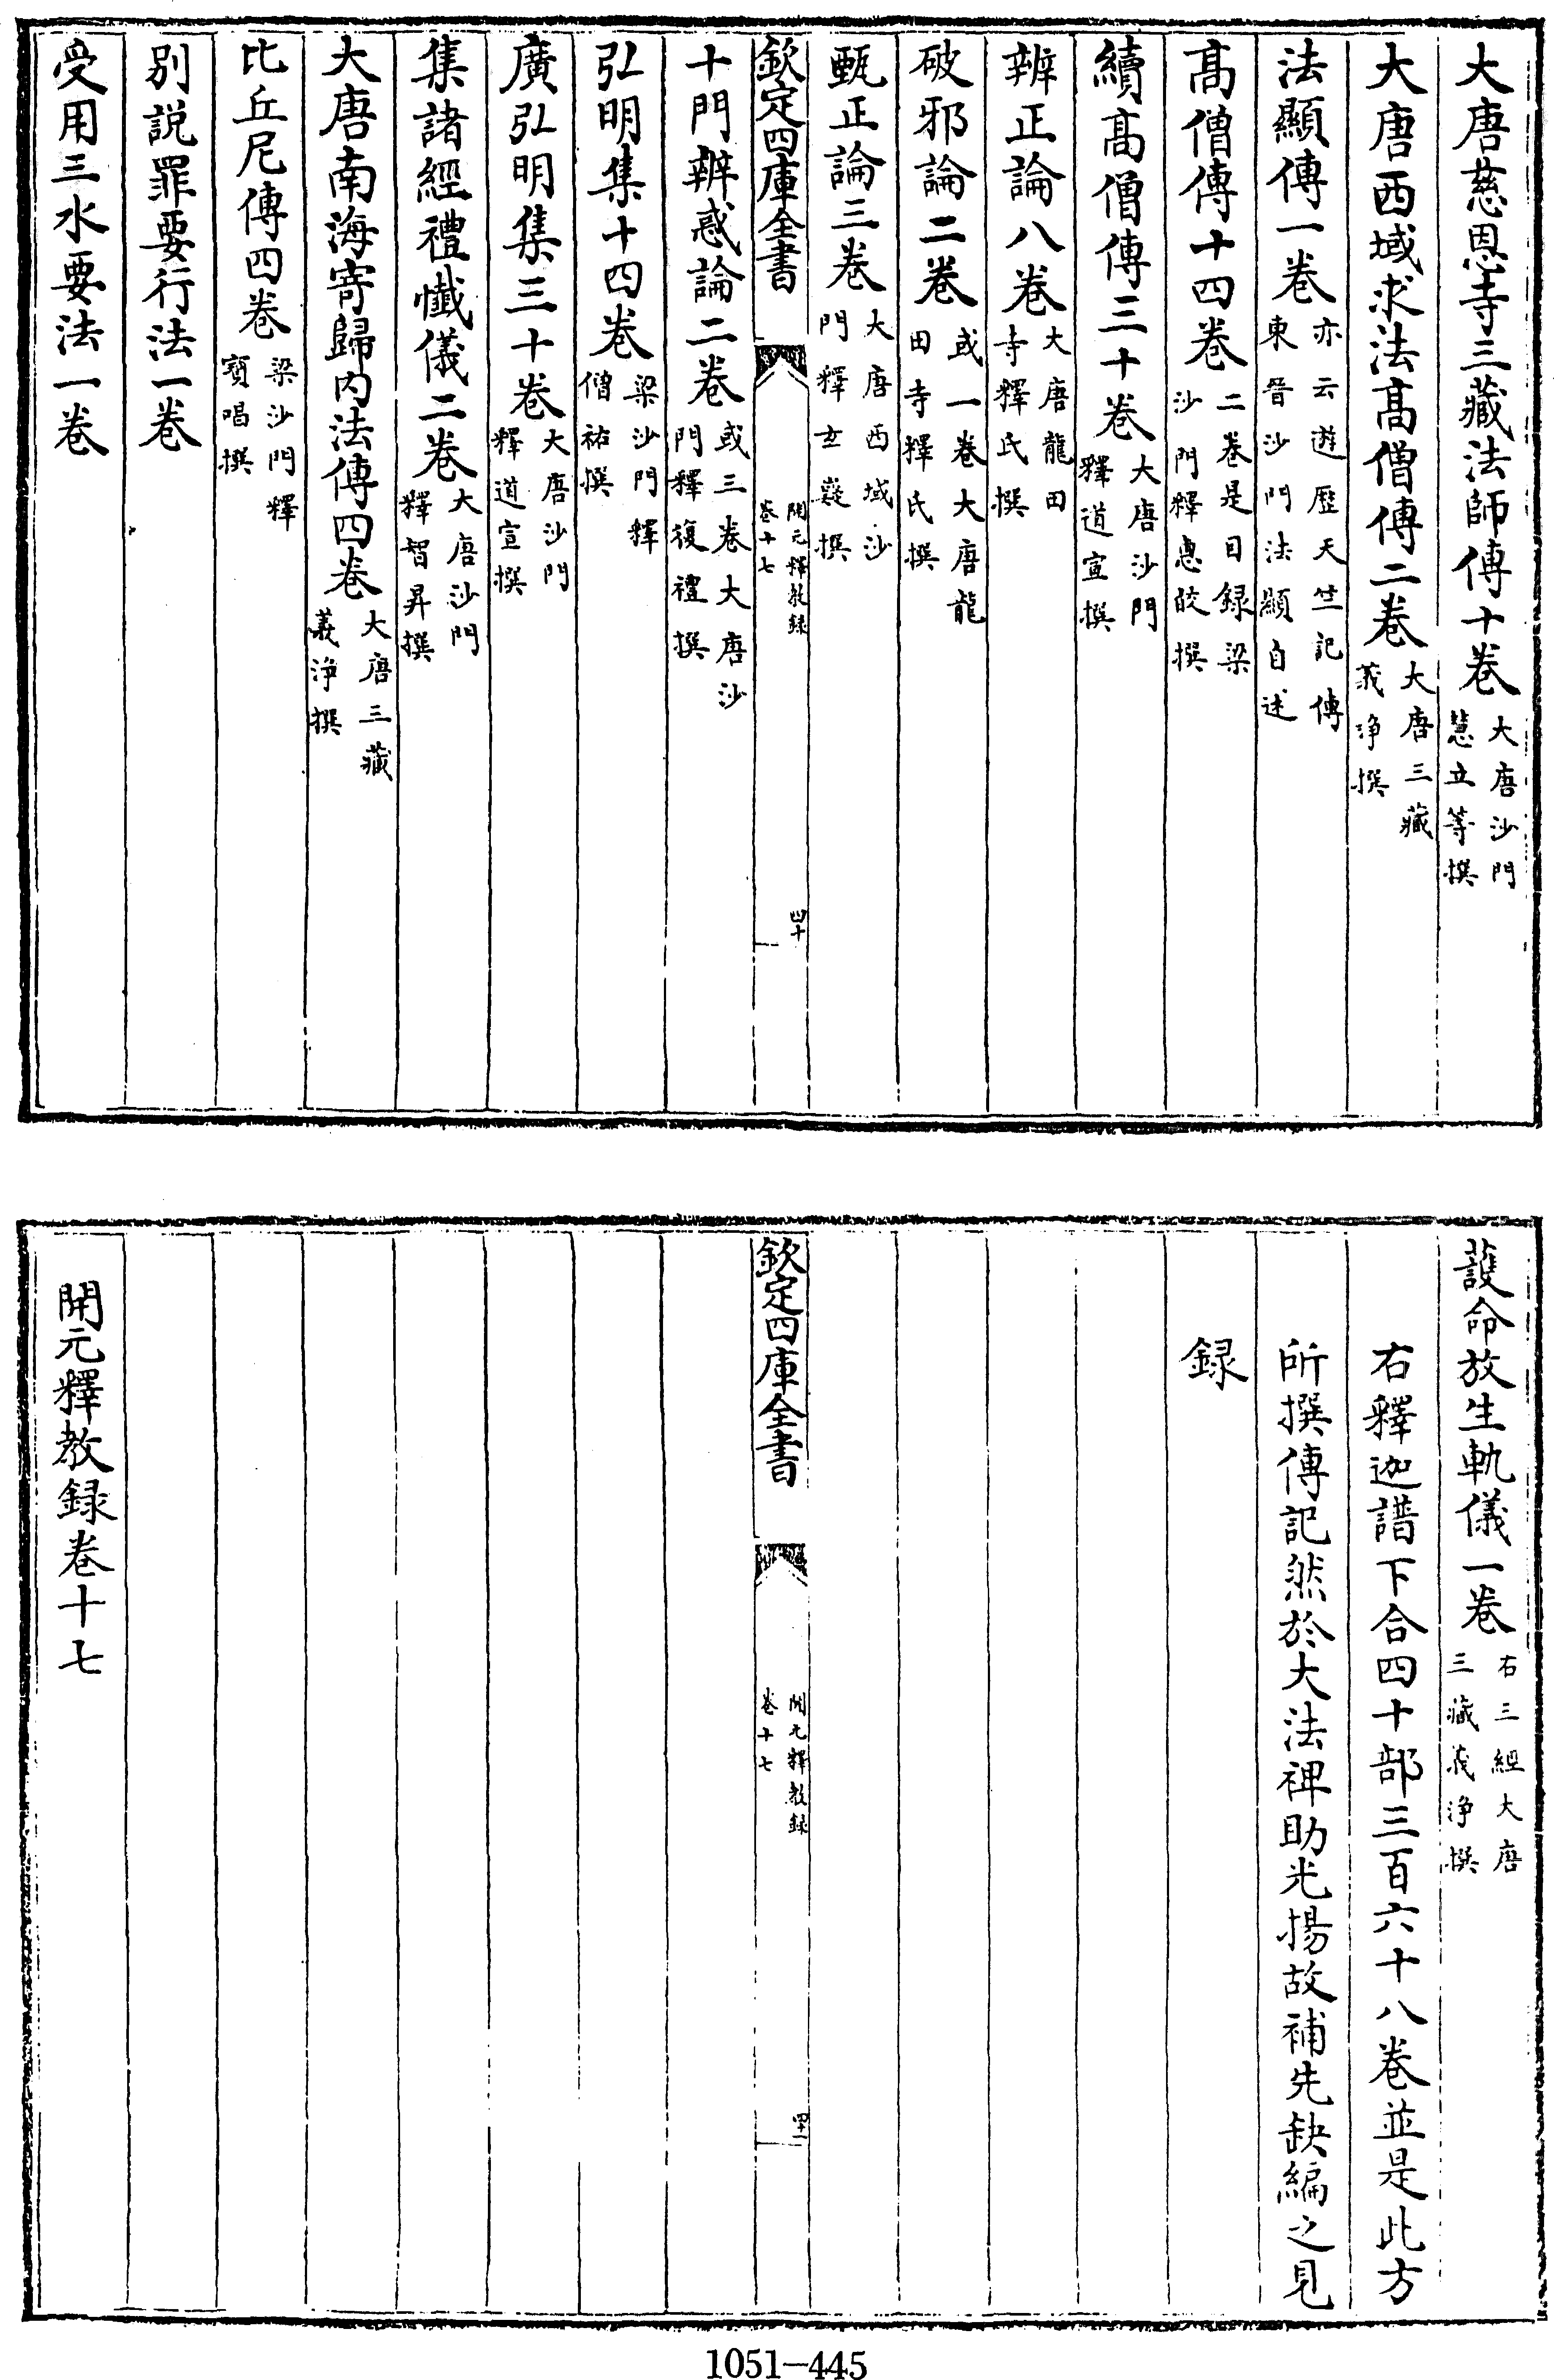 大唐慈恩寺三藏法師傳十卷大唐沙門慧立等撰
大唐西域求法髙僧傳二卷大唐三藏義浄撰
法顯傳一卷亦云遊歴天竺記傳東晉沙門法顯自述
髙僧傳十四卷二卷是目録梁沙門釋惠皎撰
續髙僧傳三十卷大唐沙門釋道宣撰
辨正論八卷大唐龍田寺釋氏撰
破邪論二卷或一卷大唐龍田寺釋氏撰
甄正論三卷大唐西域沙門釋玄嶷撰
欽定四庫全書 開元釋教録卷十七 四十
十門辨惑論二卷或三卷大唐沙門釋復禮撰
弘明集十四卷梁沙門釋僧祐撰
廣弘明集三十卷大唐沙門釋道宣撰
集諸經禮懺儀二卷大唐沙門釋智昇撰
大唐南海寄歸内法傳四卷大唐三藏義浄撰
比丘尼傳四卷梁沙門釋寳唱撰
别説罪要行法一卷
受用三水要法一卷
護命放生軌儀一卷右三經大唐三藏義浄撰
右釋迦譜下合四十部三百六十八卷並是此方
所撰傳記然於大法裨助光揚故補先缺編之見
録
欽定四庫全書 開元釋教録卷十七 四十一
開元釋教録卷十七
1051-445